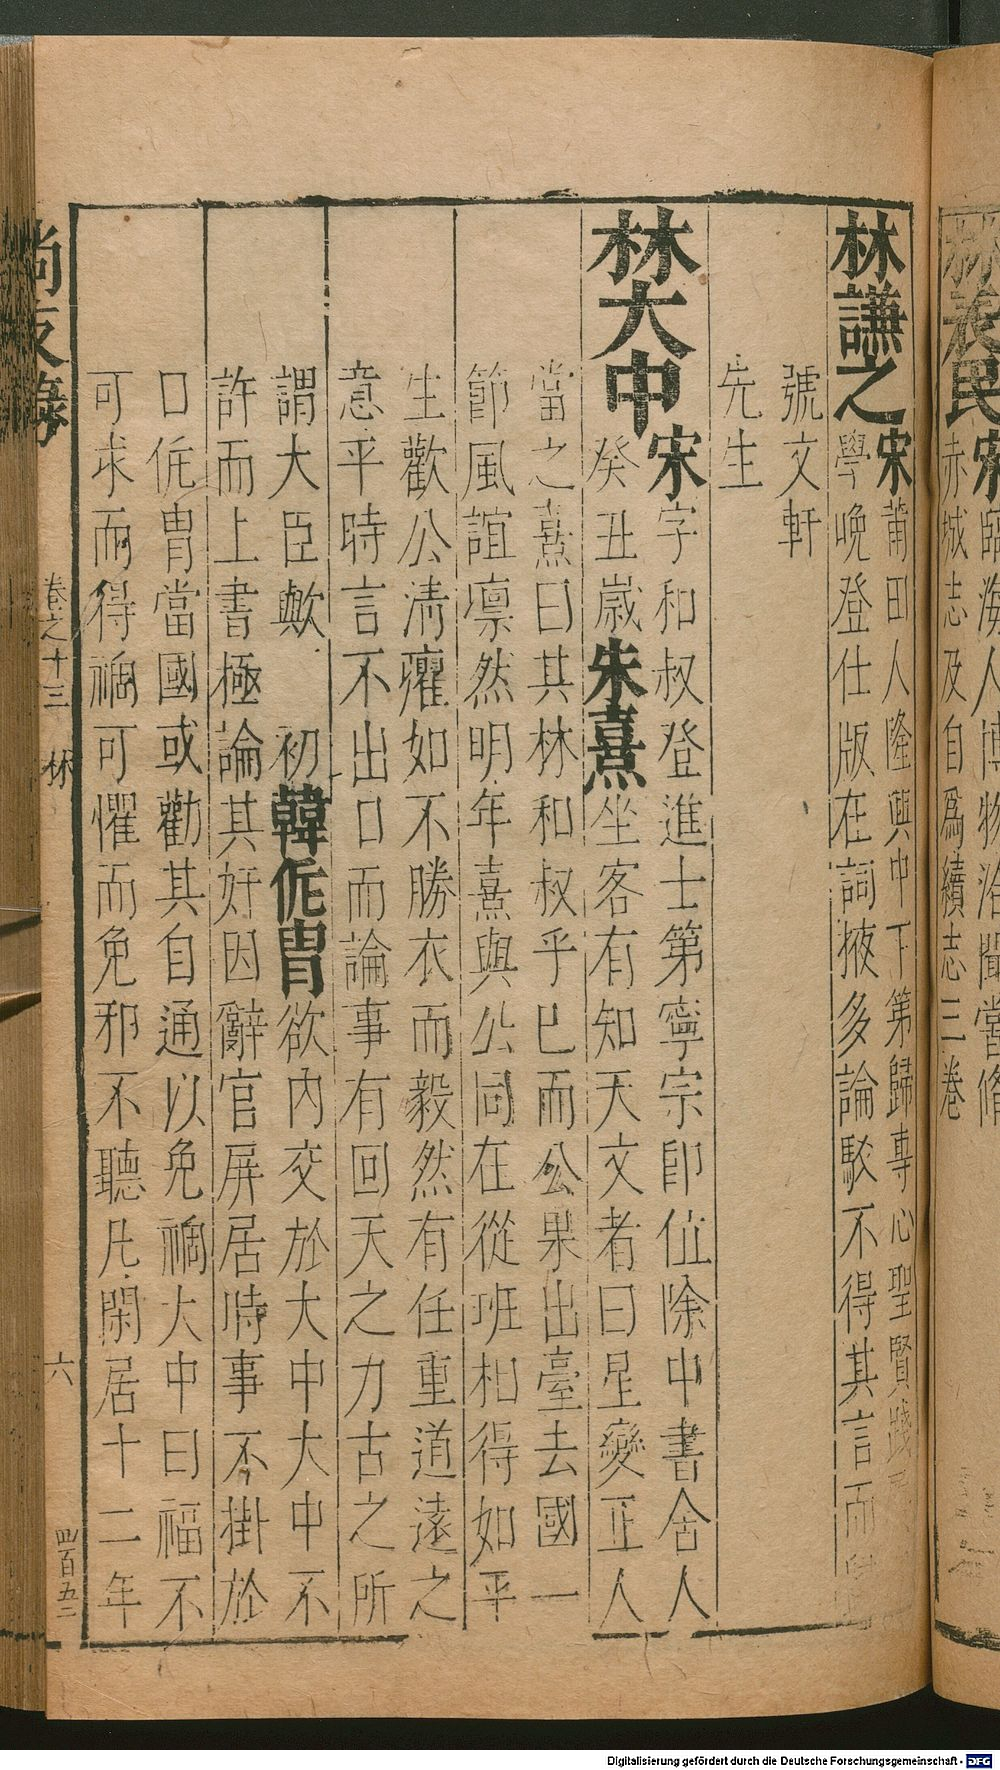 林表民宋臨海人博物洽聞嘗脩
赤城志及自爲續志三卷
林謙之宋莆田人隆興中下第歸專心聖賢踐
學晚登仕版在詞掖多論駁不得其言而
號文軒
先生
林大中宋字和叔登進士第寧宗卽位除中書舍人
癸丑歲朱熹坐客有知天文者曰星變正人
當之熹曰其林和叔乎已而公果出臺去國一
節風誼凜然明年熹與公同在從班相得如平
生歡公淸癯如不勝衣而毅然有任重道遠之
意平時言不出口而論事有回天之力古之所
謂大臣歟 初韓侂胄欲內交於大中大中不
許而上書極論其奸因辭官屏居時事不掛於
口侂胄當國或勸其自通以免禍大中曰福不
可求而得禍可懼而免邪不聽凡閑居十二年
尚友錄 卷之十三 林 六 四百五二
Digitalisierung gefördert durch die Deutsche Forschungsgemeinschaft - DFG